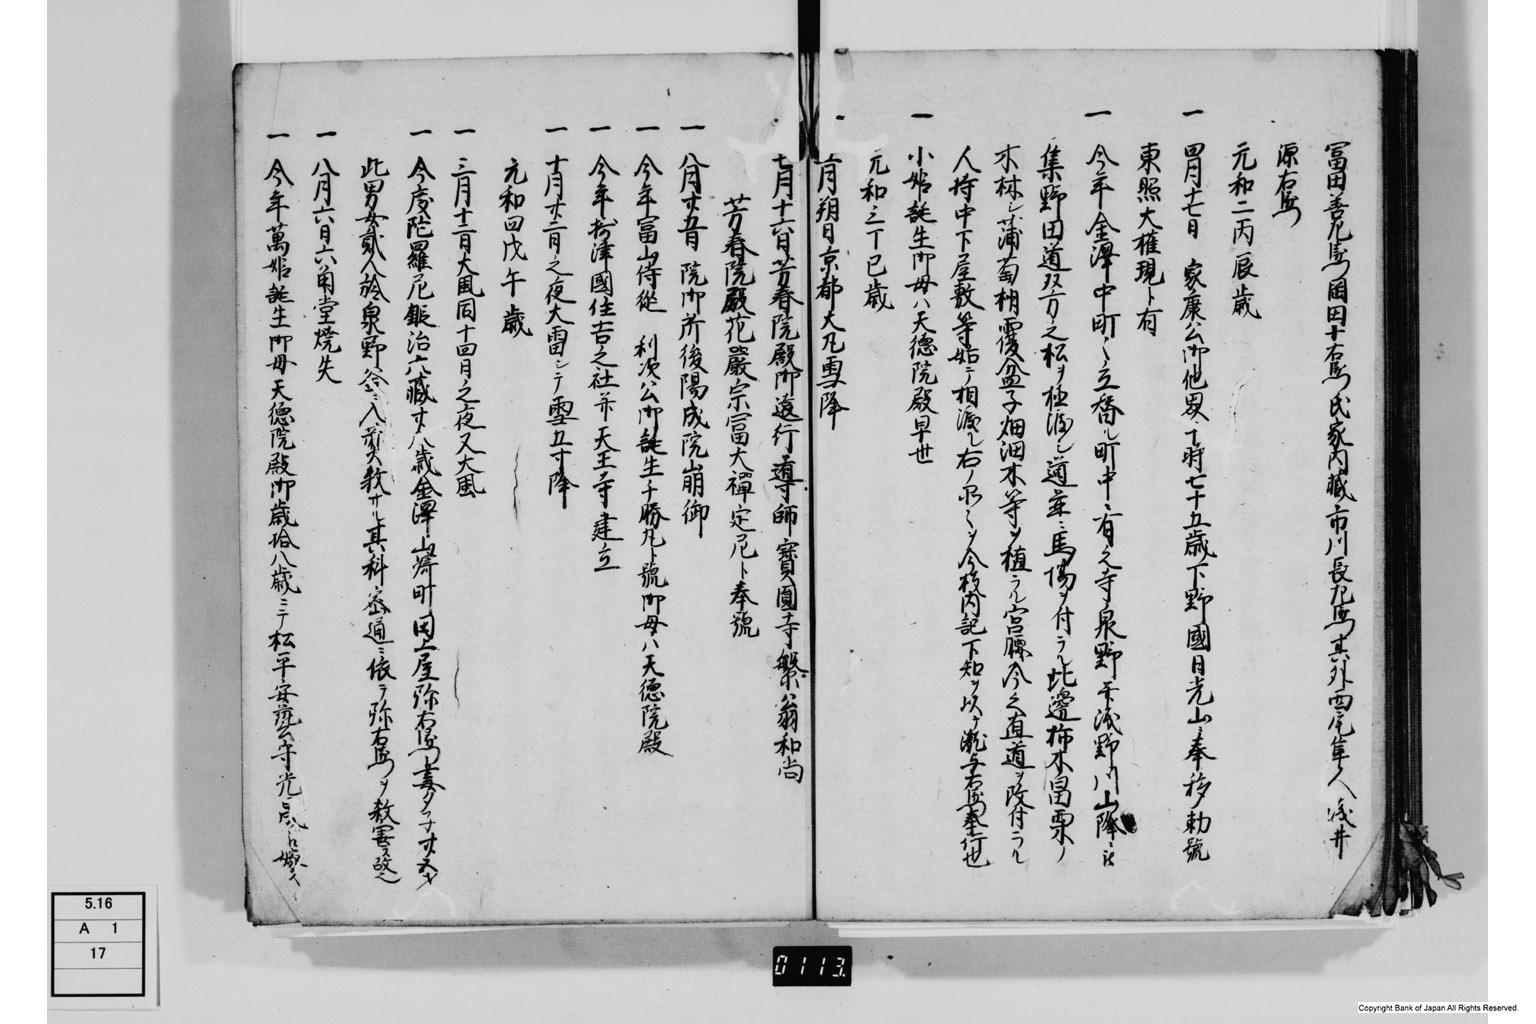 冨田善左衛門岡田十右衛門氏家内臓市川長左衛門其外西尾隼人浅井
源右衛門
元和二丙辰歳
一 四月十七日 家康公御他界于時七十五歳下野國日光山ニ奉移勅號
東照大權現ト有
一 今年金澤中町々立替ル町中ニ有之寺泉野并浅野川山際ニ
集野田道双方之松ヲ植渡シ道並ニ馬場ヲ付ラル此邊柿木畠栗ノ
木林シ蒲萄棚覆盆子畑漆木等ヲ植ラル宮腰今之直道ヲ改付ラル
人持中下屋敷等始テ相渡ル右ノ品々ヲ今枝内記下知ヲ以テ瀧与右衛門奉行也
一 小姫誕生御母ハ天徳院殿早世
元和三丁巳歳
一 正月朔日京都大凡雪降
一 七月十六日芳春院殿御遠行導師寶圓寺槃翁和尚
芳春院殿花嚴宗冨大禪定尼ト奉號
一 八月廿五日 院御所後陽成院崩御
一 今年富山侍從 利次公御誕生千勝丸ト號御母ハ天徳院殿
一 今年摂津國住吉之社并天王寺建立
一 十月廿二日之夜大雷シテ雪五寸降
元和四戊午歳
一 三月十二日大風同十四日之夜又大風
一 今度陀羅尼鍛治六臓廿八歳金澤山崎町因上屋弥右衛門妻タ子廿五才
此男女貳人於泉野釜ニ入煎殺サル其科密通ニ依テ弥右衛門ヲ殺害ス故也
一 八月六日六角堂焼失
一 今年萬姫誕生御母天徳院殿御歳拾八歳ニテ松平安藝守光晟ニ嫁ス
5.16
A 1
17
0113.
Copyright Bank of Japan All Rights Reserved.